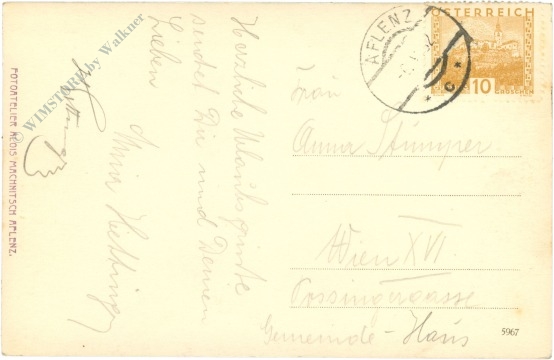 FOTOATELIER ALOIS MACHNITSCH AFLENZ.
WIMSTORE by Walkner
Herzliche Urlaubsgrüße
sendet Dir und Deinen
Lieben
Mina Hettinger
AFLENZ
* C *
ÖSTERREICH
10
GROSCHEN
Frau
Anna Stumper
Wien XVI
Possingergasse
Gemeinde-Haus
5967